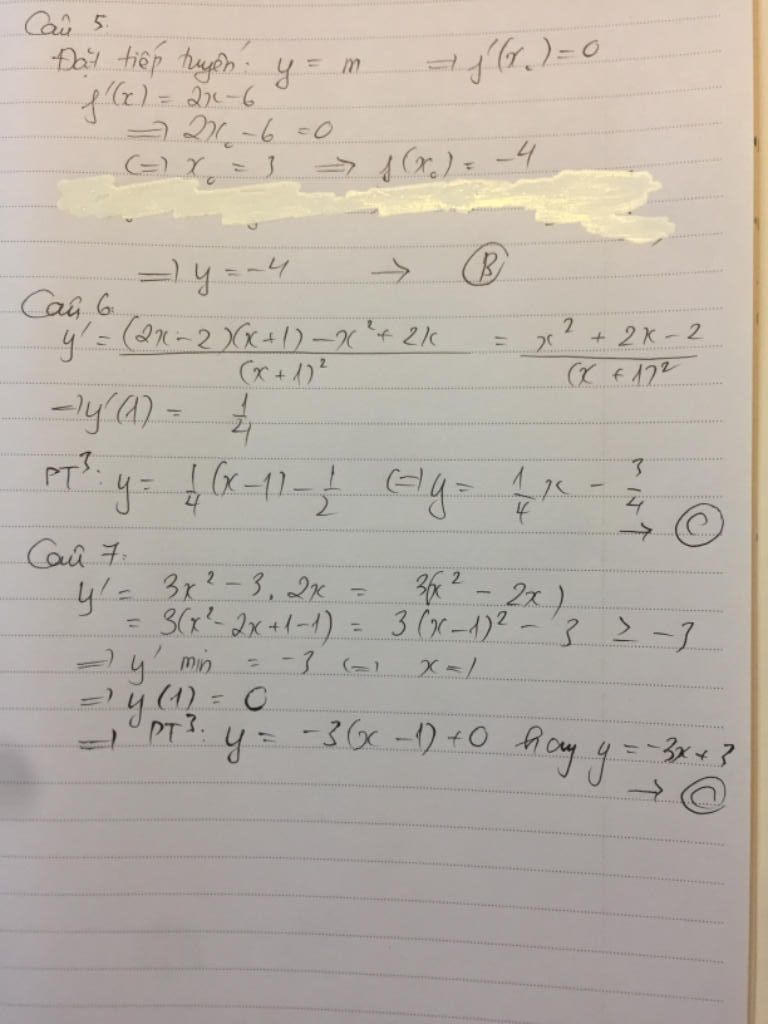 Câu 5.
Đặt tiếp tuyến: y = m => f'(x₀) = 0
f'(x) = 2x-6
=> 2x₀ - 6 = 0
(=) x₀ = 3 => f(x₀) = -4
=> y = -4 → B
Câu 6.
y' = (2x-2)(x+1) - x² + 2x / (x+1)² = x² + 2x - 2 / (x+1)²
=> y'(1) = 1/4
PT³: y = 1/4 (x-1) - 1/2 (=) y = 1/4 x - 3/4
→ C
Câu 7:
y' = 3x² - 3.2x = 3(x² - 2x)
= 3(x² - 2x + 1 - 1) = 3(x-1)² - 3 ≥ -3
=> y' min = -3 (=) x = 1
=> y(1) = 0
=> PT³: y = -3(x-1) + 0 hay y = -3x + 3
→ C